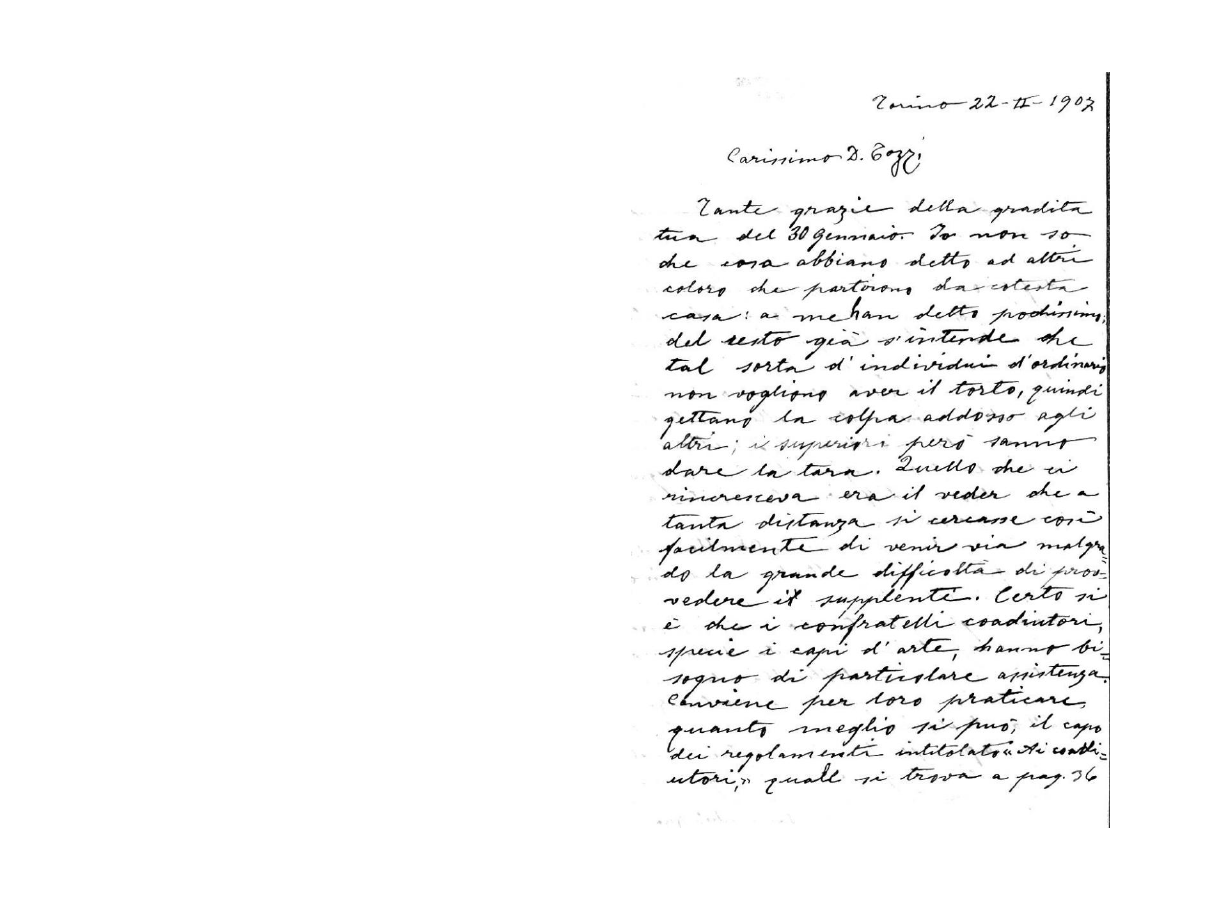 Torino 22-II-1907
Carissimo D. Tozzi
Tante grazie della gradita
tua del 30 Gennaio. Io non so
che cosa abbiano detto ad altri
coloro che partirono da cotesta
casa: a me han detto pochissimo;
del resto già s'intende che
tal sorta d'individui d'ordinario
non vogliono aver il torto, quindi
gettano la colpa addosso agli
altri; i superiori però sanno
dare la tara. Quello che ci
rincresceva era il veder che a
tanta distanza si cercasse così
facilmente di venir via malgra=
do la grande difficoltà di prov=
vedere il supplente. Certo si
è che i confratelli coadiutori,
specie i capi d'arte, hanno bi=
sogno di particolare assistenza.
Conviene per loro praticare,
quanto meglio si può, il capo
dei regolamenti intitolato "Ai coadi=
utori," quale si trova a pag. 36